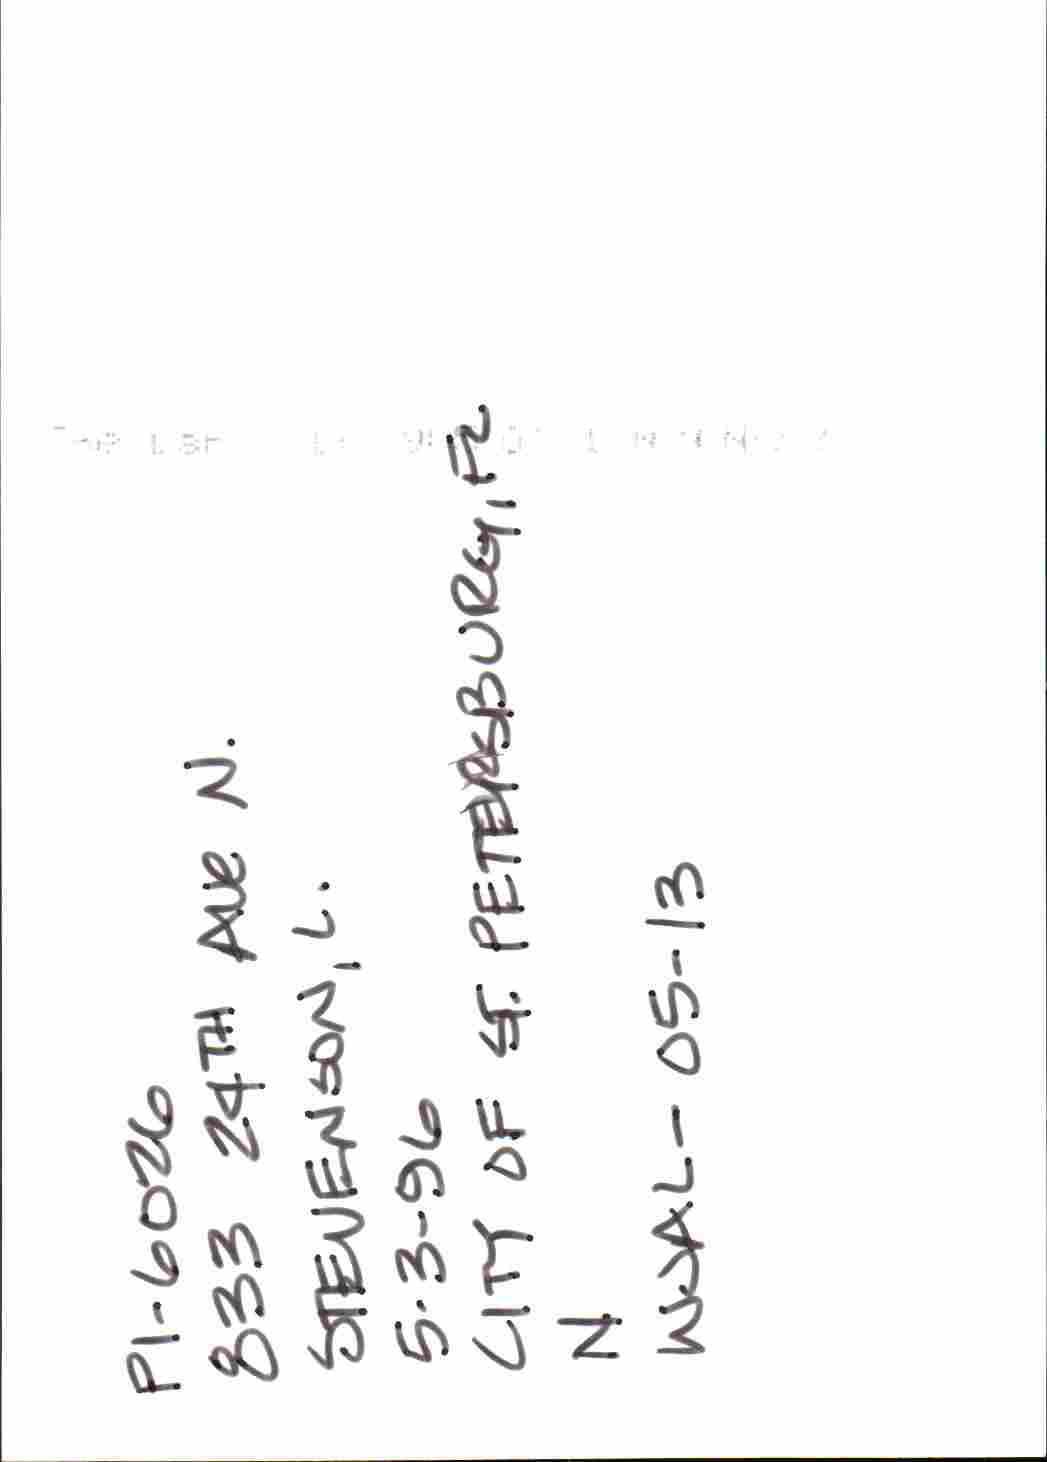 PI-6026
833 24TH AVE N.
STEVENSON, L.
5-3-96
CITY OF ST. PETERSBURG, FL
N
WJAL-05-13